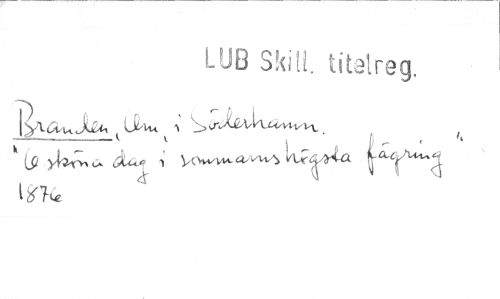 LUB Skill. titelreg.
Branden, Om, i Söderhamn.
"O sköna dag i sommarns högsta fägring"
1876